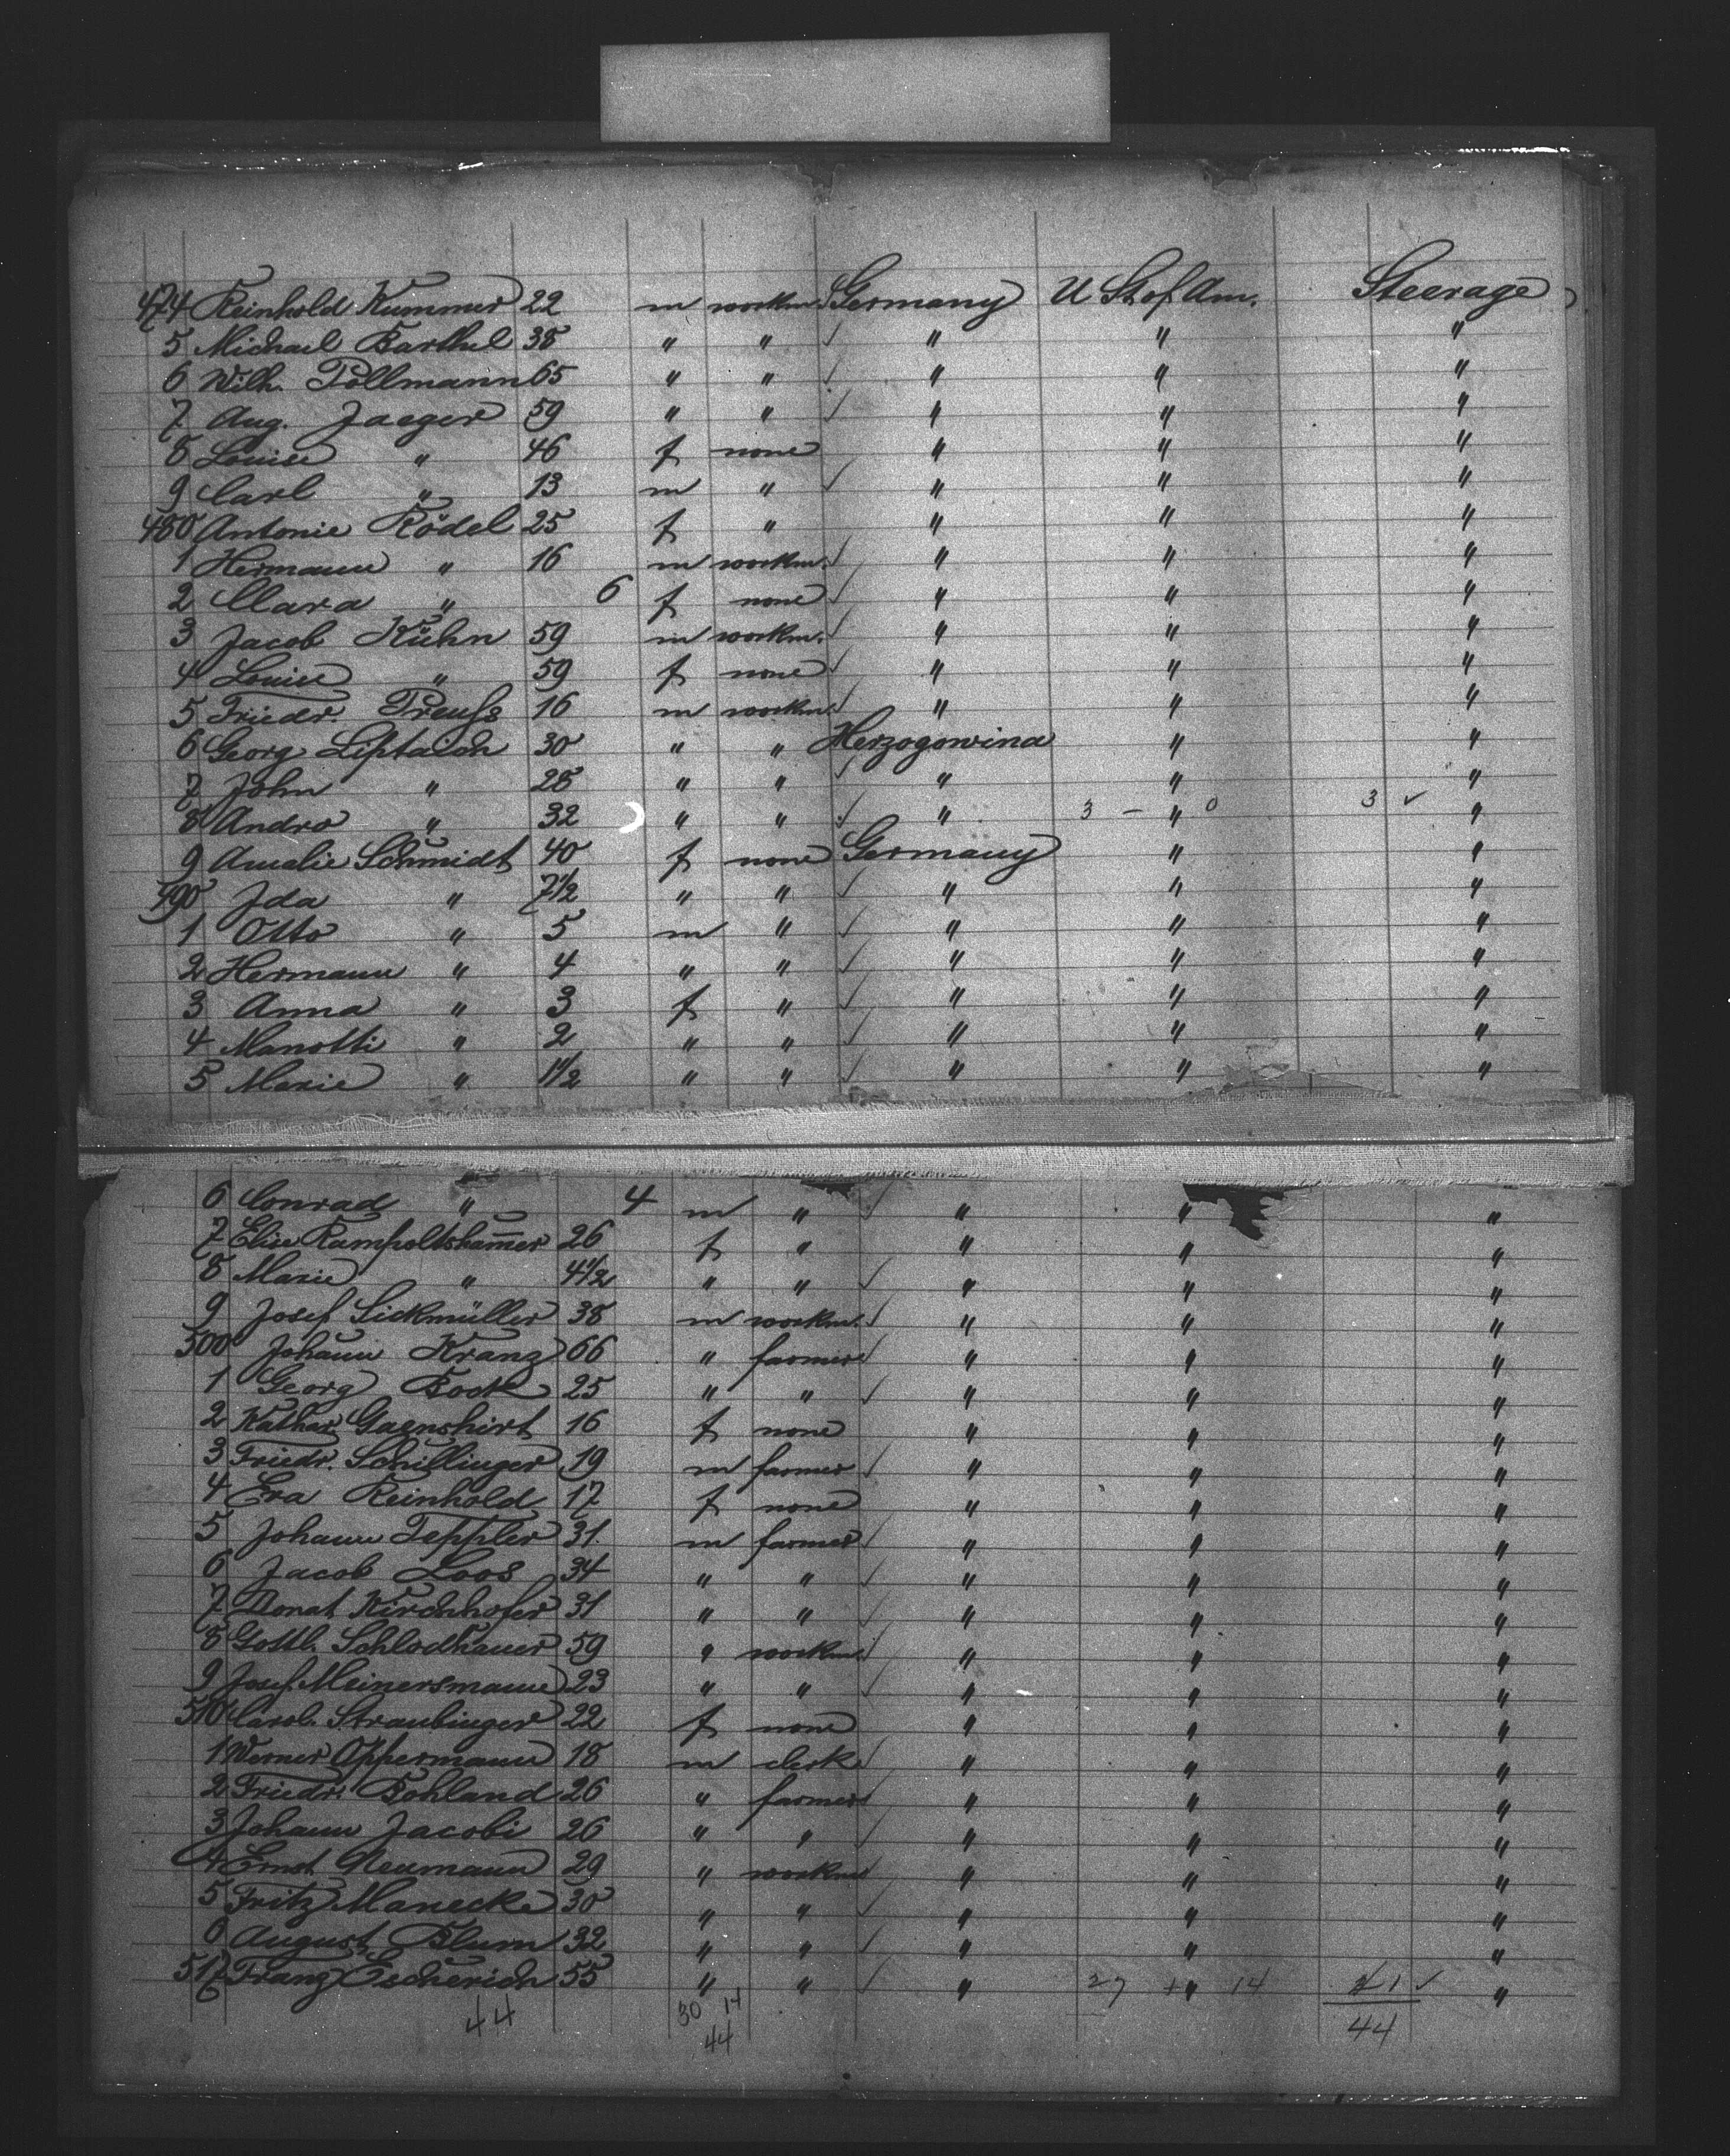 474 Reinhold Kummer 22 m workm. Germany U St of Am. Steerage
5 Michael Barthel 38 " " " " "
6 Wilh. Pollmann 65 " " " " "
7 Aug. Jaeger 59 " " " " "
8 Louise " 46 f none " " "
9 Carl " 13 m " " " "
480 Antonie Rödel 25 f " " " "
1 Hermann " 16 m workm. " " "
2 Clara " 6 f none " " "
3 Jacob Kühn 59 m workm. " " "
4 Louise " 59 f none " " "
5 Friedr. Preuß 16 m workm. " " "
6 Georg Liptaich 30 " " Herzogowina " "
7 John " 28 " " " " "
8 Andro " 32 " " " 3 - " 0 3 ✓ "
9 Amalie Schmidt 40 f none Germany " "
490 Ida " 7 1/2 " " " " "
1 Otto " 5 m " " " "
2 Hermann " 4 " " " " "
3 Anna " 3 f " " " "
4 Manotti " 2 " " " " "
5 Marie " 1 1/2 " " " " "
6 Conrad " 4 m " " " "
7 Elise Rampoltshamer 26 f " " " "
8 Marie " 4 1/2 " " " " "
9 Josef Sickmüller 38 m workm. " " "
500 Johann Kranz 66 " farmer " " "
1 Georg Bock 25 " " " " "
2 Kathar. Gaenshirt 16 f none " " "
3 Friedr. Schillinger 19 m farmer " " "
4 Eva Reinhold 17 f none " " "
5 Johann Teppler 31. m farmer " " "
6 Jacob Loos 34 " " " " "
7 Donat Kirchhofer 31 " " " " "
8 Gottl. Schlodhauer 59 " workm. " " "
9 Josef Meinersmann 23 " " " " "
510 Carol. Straubinger 22 f none " " "
1 Werner Oppermann 18 m clerk " " "
2 Friedr. Bohland 26 " farmer " " "
3 Johann Jacobi 26 " " " " "
4 Ernst Neumann 29 " workm " " "
5 Fritz Manecke 30 " " " " "
6 August Blum 32 " " " " "
517 Franz Escherich 55 " " " 27 + " 14 41 ✓ "
44 30 14 44
44